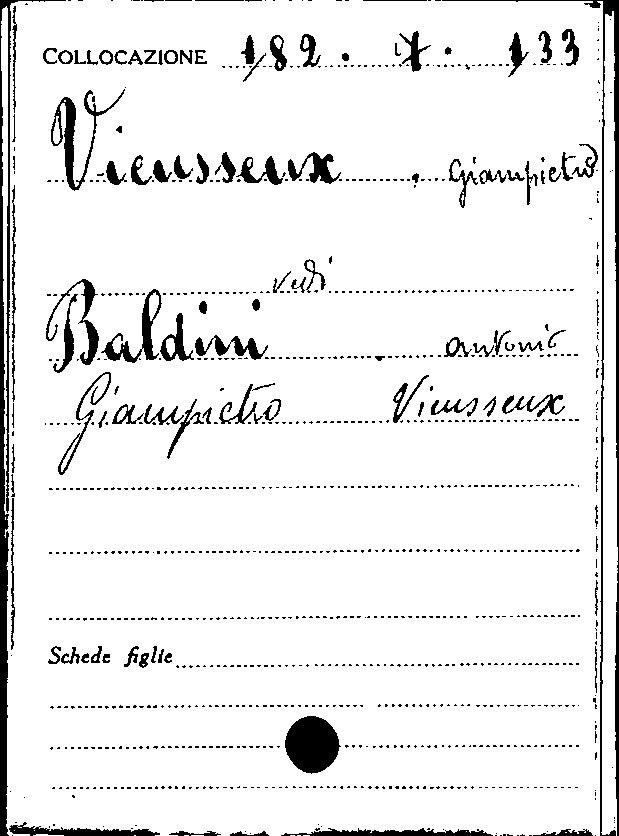 COLLOCAZIONE 182. 7. 133
Vieusseux. Giampietro
vedi
Baldini. Antonio
Giampietro Vieusseux
Schede figlie